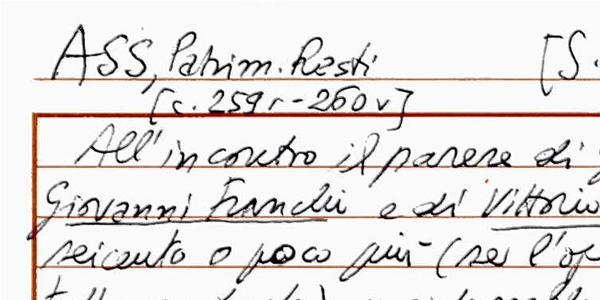 ASS, Patrim. Resti [S.
[c. 259r-260v]
All'incontro il parere di
Giovanni Franchi e di Vittorio
seicento o poco più (se l'op